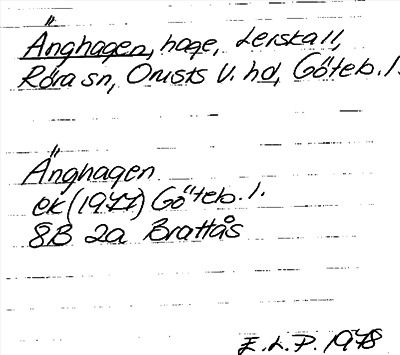 Änghagen, hage, Lerskall,
Röra sn, Orusts V. hd, Göteb. l.
Änghagen
ek (1977) Göteb. l.
8B 2a Brattås
E. L. P. 1978